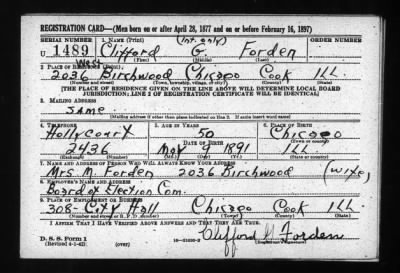 REGISTRATION CARD—(Men born on or after April 28, 1877 and on or before February 16, 1897)
SERIAL NUMBER 1. NAME (Print) (Int. only) ORDER NUMBER
U 1489 Clifford G. Forden
(First) (Middle) (Last)
2. PLACE OF RESIDENCE (Print) West
2036 Birchwood Chicago Cook ILL.
(Number and street) (Town, township, village, or city) (County) (State)
[THE PLACE OF RESIDENCE GIVEN ON THE LINE ABOVE WILL DETERMINE LOCAL BOARD
JURISDICTION; LINE 2 OF REGISTRATION CERTIFICATE WILL BE IDENTICAL]
3. MAILING ADDRESS
same
[Mailing address if other than place indicated on line 2. If same insert word same]
4. TELEPHONE 5. AGE IN YEARS 6. PLACE OF BIRTH
Hollycourt 50 Chicago
DATE OF BIRTH (Town or county)
2436 Nov 9 1891 ILL.
(Exchange) (Number) (Mo.) (Day) (Yr.) (State or country)
7. NAME AND ADDRESS OF PERSON WHO WILL ALWAYS KNOW YOUR ADDRESS
Mrs M. Forden 2036 Birchwood (wife)
8. EMPLOYER'S NAME AND ADDRESS
Board of Election Com.
9. PLACE OF EMPLOYMENT OR BUSINESS
308- City Hall Chicago Cook ILL
(Number and street or R. F. D. number) (Town) (County) (State)
I AFFIRM THAT I HAVE VERIFIED ABOVE ANSWERS AND THAT THEY ARE TRUE.
D. S. S. Form 1
(Revised 4-1-42) (over) Clifford G Forden
(Registrant's signature)